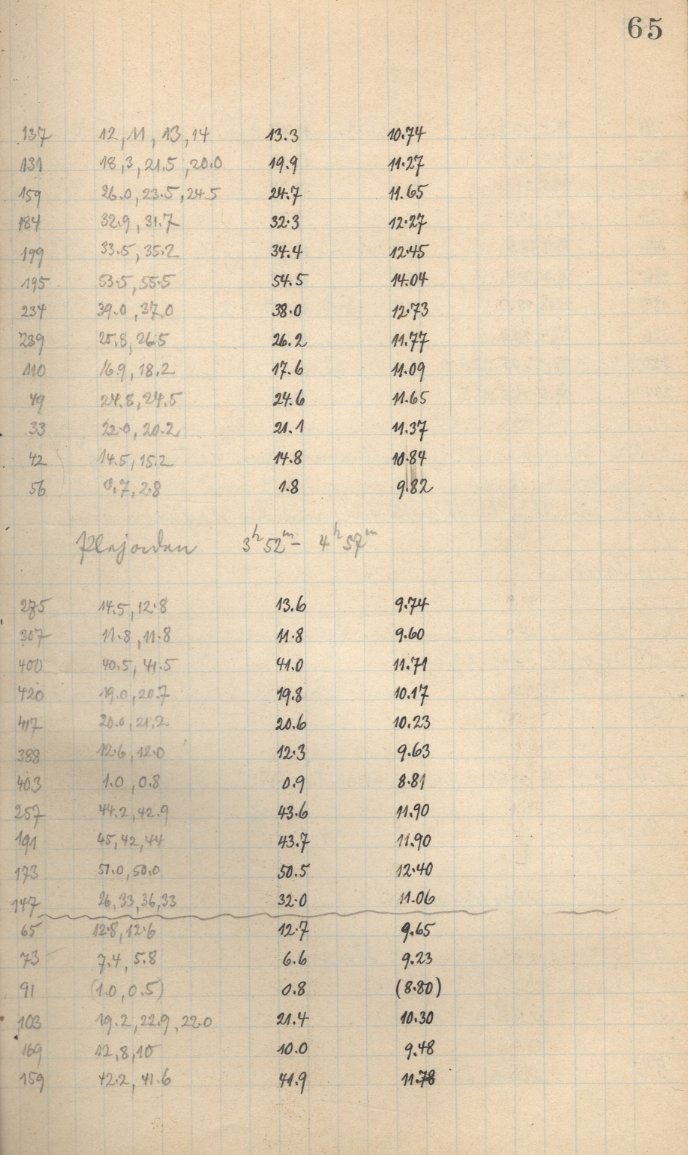 65
137 12, 11, 13, 14 13.3 10.74
131 18.3, 21.5, 20.0 19.9 11.27
159 26.0, 23.5, 24.5 24.7 11.65
184 32.9, 31.7 32.3 12.27
199 33.5, 35.2 34.4 12.45
195 53.5, 55.5 54.5 14.04
234 39.0, 37.0 38.0 12.73
239 25.8, 26.5 26.2 11.77
110 16.9, 18.2 17.6 11.09
49 24.8, 24.5 24.6 11.65
33 22.0, 20.2 21.1 11.37
42 14.5, 15.2 14.8 10.84
56 0.7, 2.8 1.8 9.82
Plejaden 3h 52m – 4h 57m
275 14.5, 12.8 13.6 9.74
307 11.8, 11.8 11.8 9.60
400 40.5, 41.5 41.0 11.71
420 19.0, 20.7 19.8 10.17
417 20.0, 21.2 20.6 10.23
388 12.6, 12.0 12.3 9.63
403 1.0, 0.8 0.9 8.81
257 44.2, 42.9 43.6 11.90
191 45, 42, 44 43.7 11.90
173 51.0, 50.0 50.5 12.40
147 26, 33, 36, 33 32.0 11.06
65 12.8, 12.6 12.7 9.65
73 7.4, 5.8 6.6 9.23
91 (1.0, 0.5) 0.8 (8.80)
103 19.2, 22.9, 22.0 21.4 10.30
169 12, 8, 10 10.0 9.48
159 42.2, 41.6 41.9 11.78